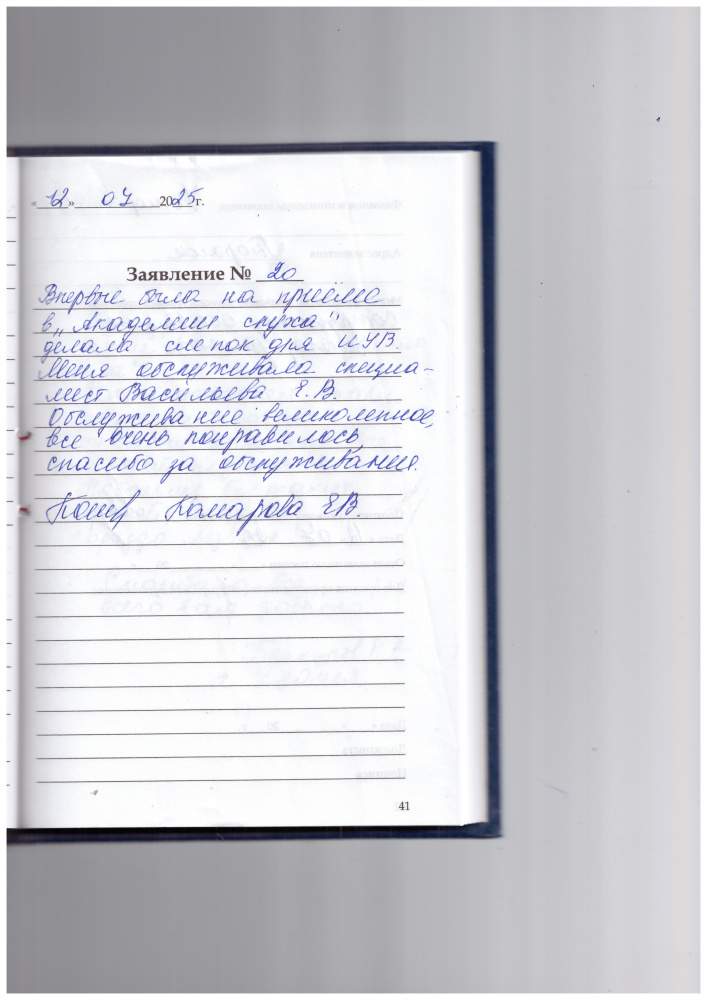 «12» 07 2025г.
Заявление № 20
Впервые была на приёме
в „Академии слуха"
делала слепок для ИУВ.
Меня обслуживала специа-
лист Васильева Е.В.
Обслуживание великолепное,
все очень понравилось,
спасибо за обслуживание.
Комарова Е.В.
41